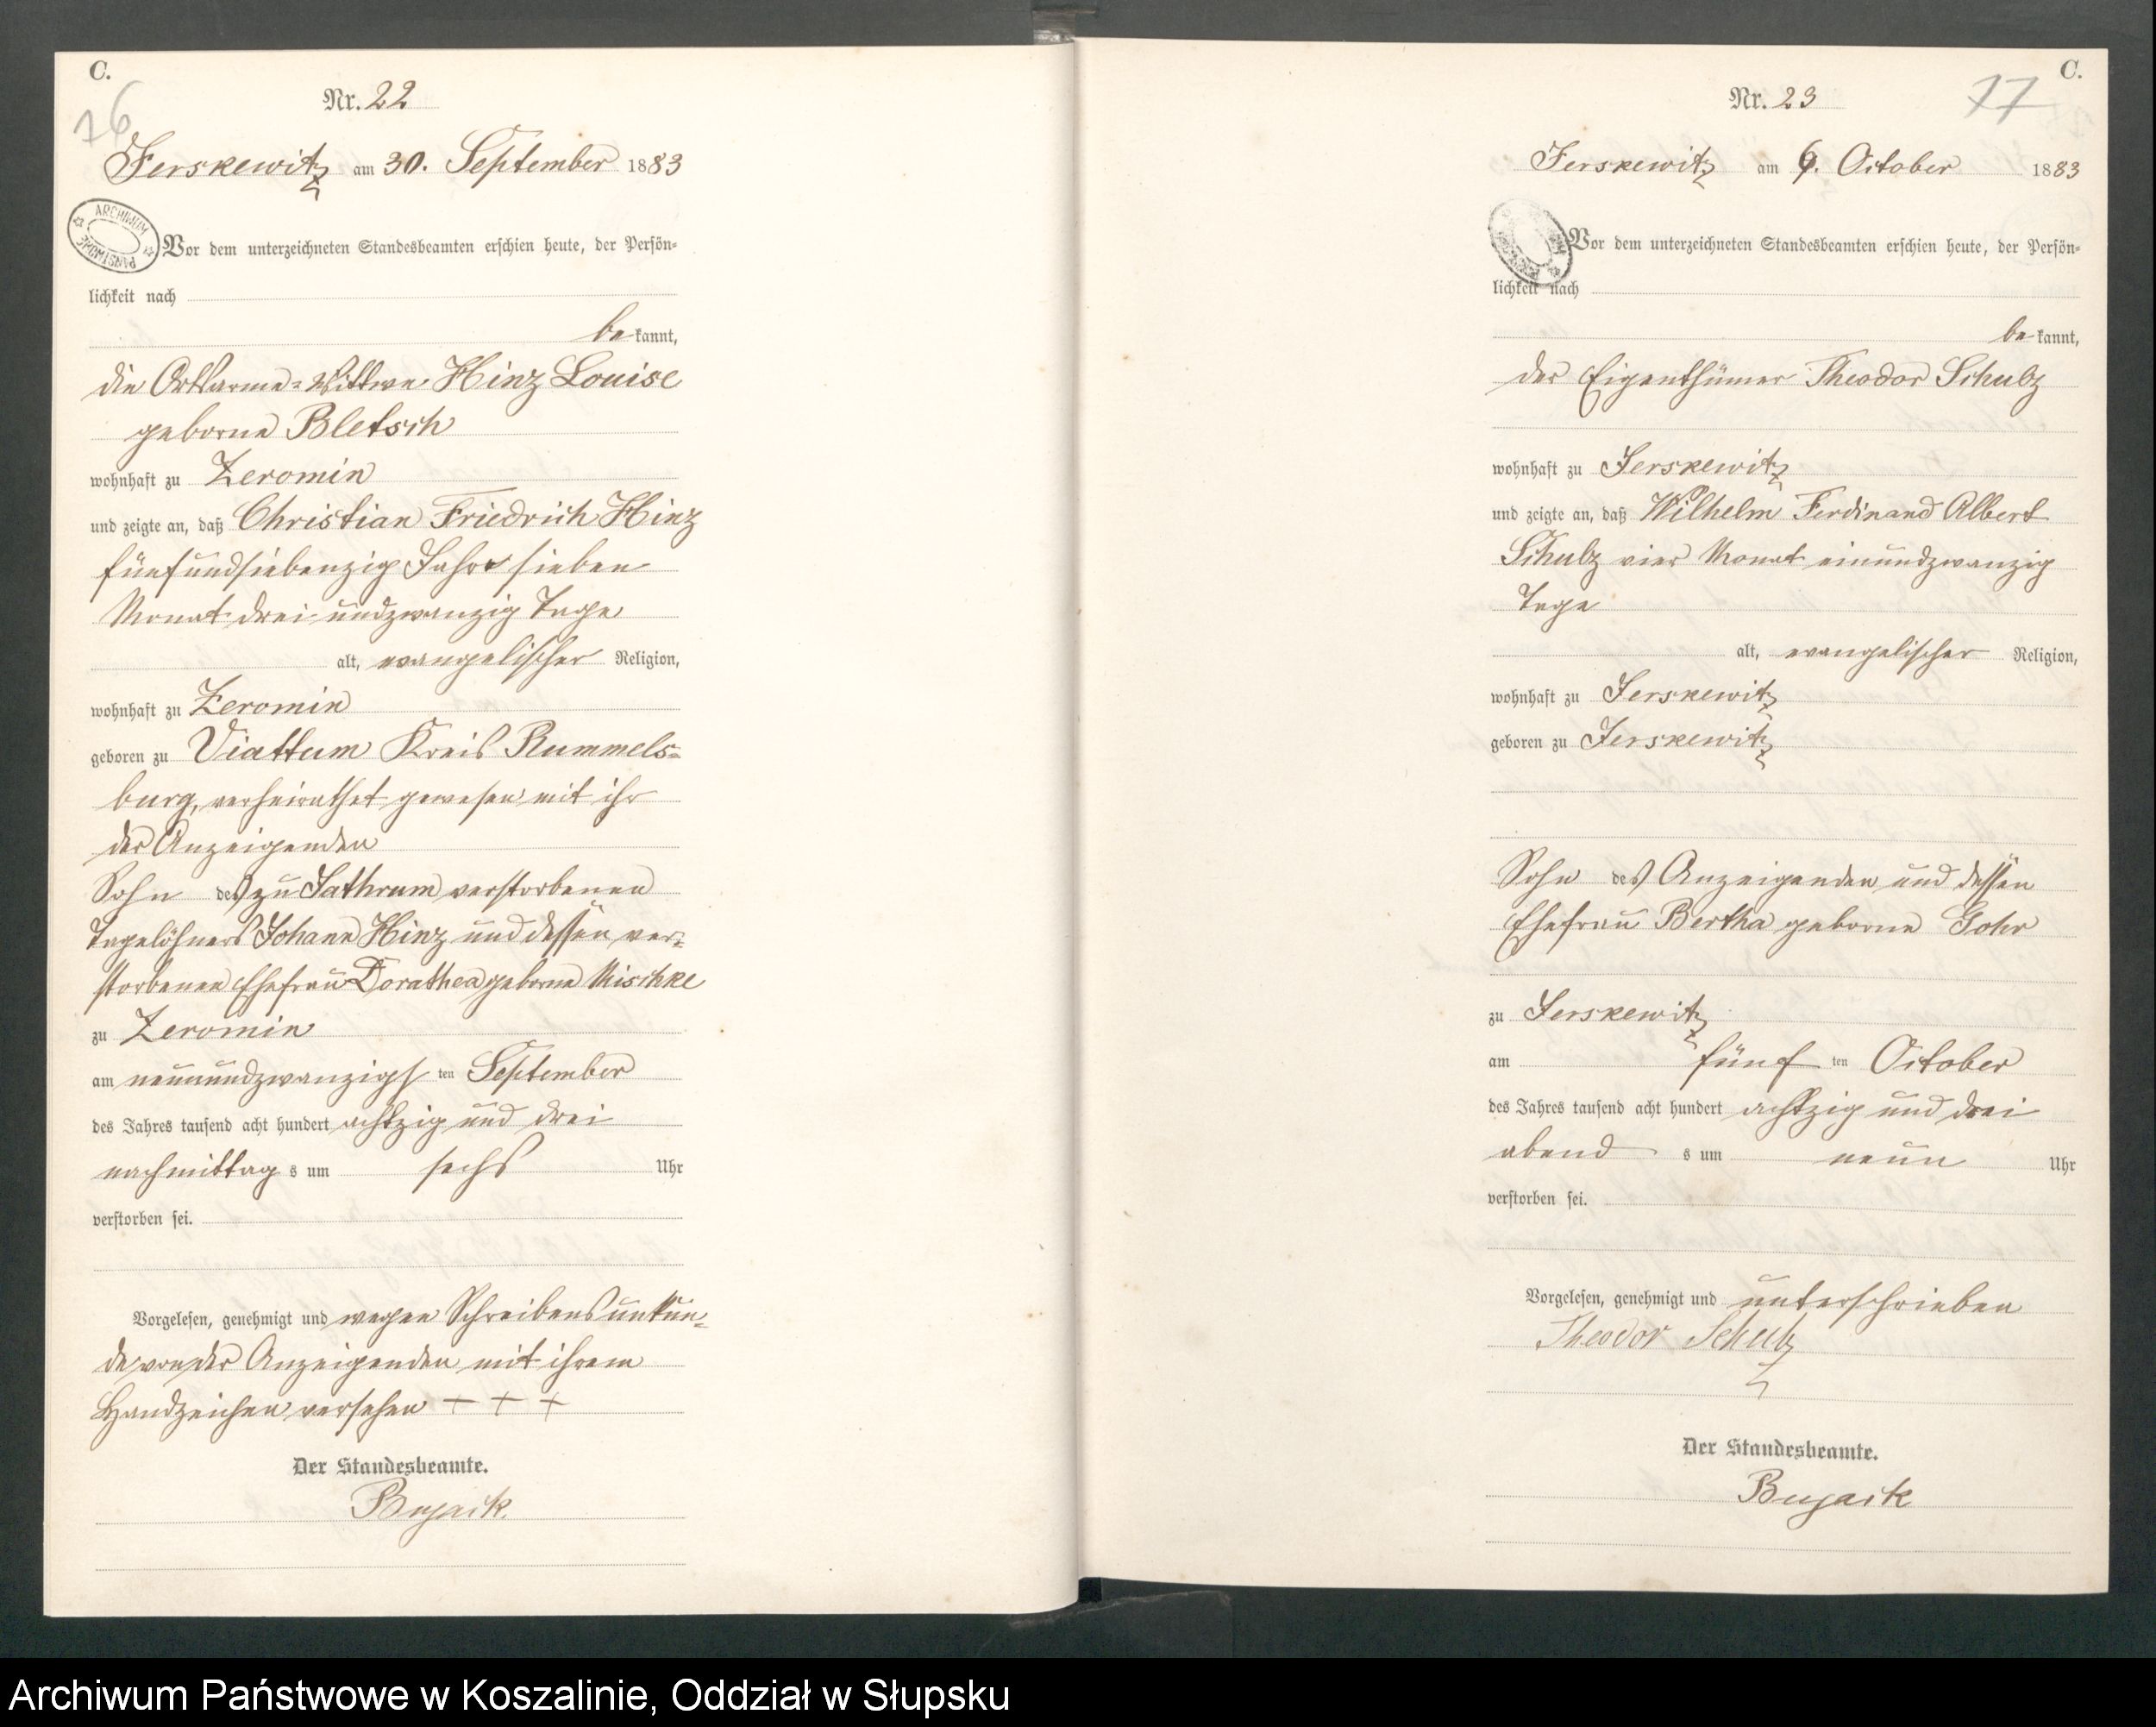 C.
76
Nr. 22
Jerskewitz am 30. September 1883
ARCHIWUM PAŃSTWOWE
Vor dem unterzeichneten Standesbeamten erschien heute, der Persön-
lichkeit nach
be kannt,
die Ortsarme-Wittwe Hinz Louise
geborne Bletsch
wohnhaft zu Zeromin
und zeigte an, daß Christian Friedrich Hinz
fünfundsiebenzig Jahr sieben
Monat drei undzwanzig Tage
alt, evangelischer Religion,
wohnhaft zu Zeromin
geboren zu Viattum Kreis Rummels-
burg, verheirathet gewesen mit ihr
der Anzeigenden
Sohn des zu Sathrum verstorbenen
Tagelöhners Johann Hinz und dessen ver-
storbenen Ehefrau Dorathea geborne Mischke
zu Zeromin
am neunundzwanzigs ten September
des Jahres tausend acht hundert achtzig und drei
nachmittag s um sechs Uhr
verstorben sei.
Vorgelesen, genehmigt und wegen Schreibensunkun-
de von der Anzeigenden mit ihrem
Handzeichen versehen + + +
Der Standesbeamte.
Bujack
C.
77
Nr. 23
Jerskewitz am 6. October 1883
Vor dem unterzeichneten Standesbeamten erschien heute, der Persön-
lichkeit nach
be kannt,
der Eigenthümer Theodor Schulz
wohnhaft zu Jerskewitz
und zeigte an, daß Wilhelm Ferdinand Albert
Schulz vier Monat einundzwanzig
Tage
alt, evangelischer Religion,
wohnhaft zu Jerskewitz
geboren zu Jerskewitz
Sohn des Anzeigenden und dessen
Ehefrau Bertha geborne Gohr
zu Jerskewitz
am fünf ten October
des Jahres tausend acht hundert achtzig und drei
abend s um neun Uhr
verstorben sei.
Vorgelesen, genehmigt und unterschrieben
Theodor Schulz
Der Standesbeamte.
Bujack
Archiwum Państwowe w Koszalinie, Oddział w Słupsku